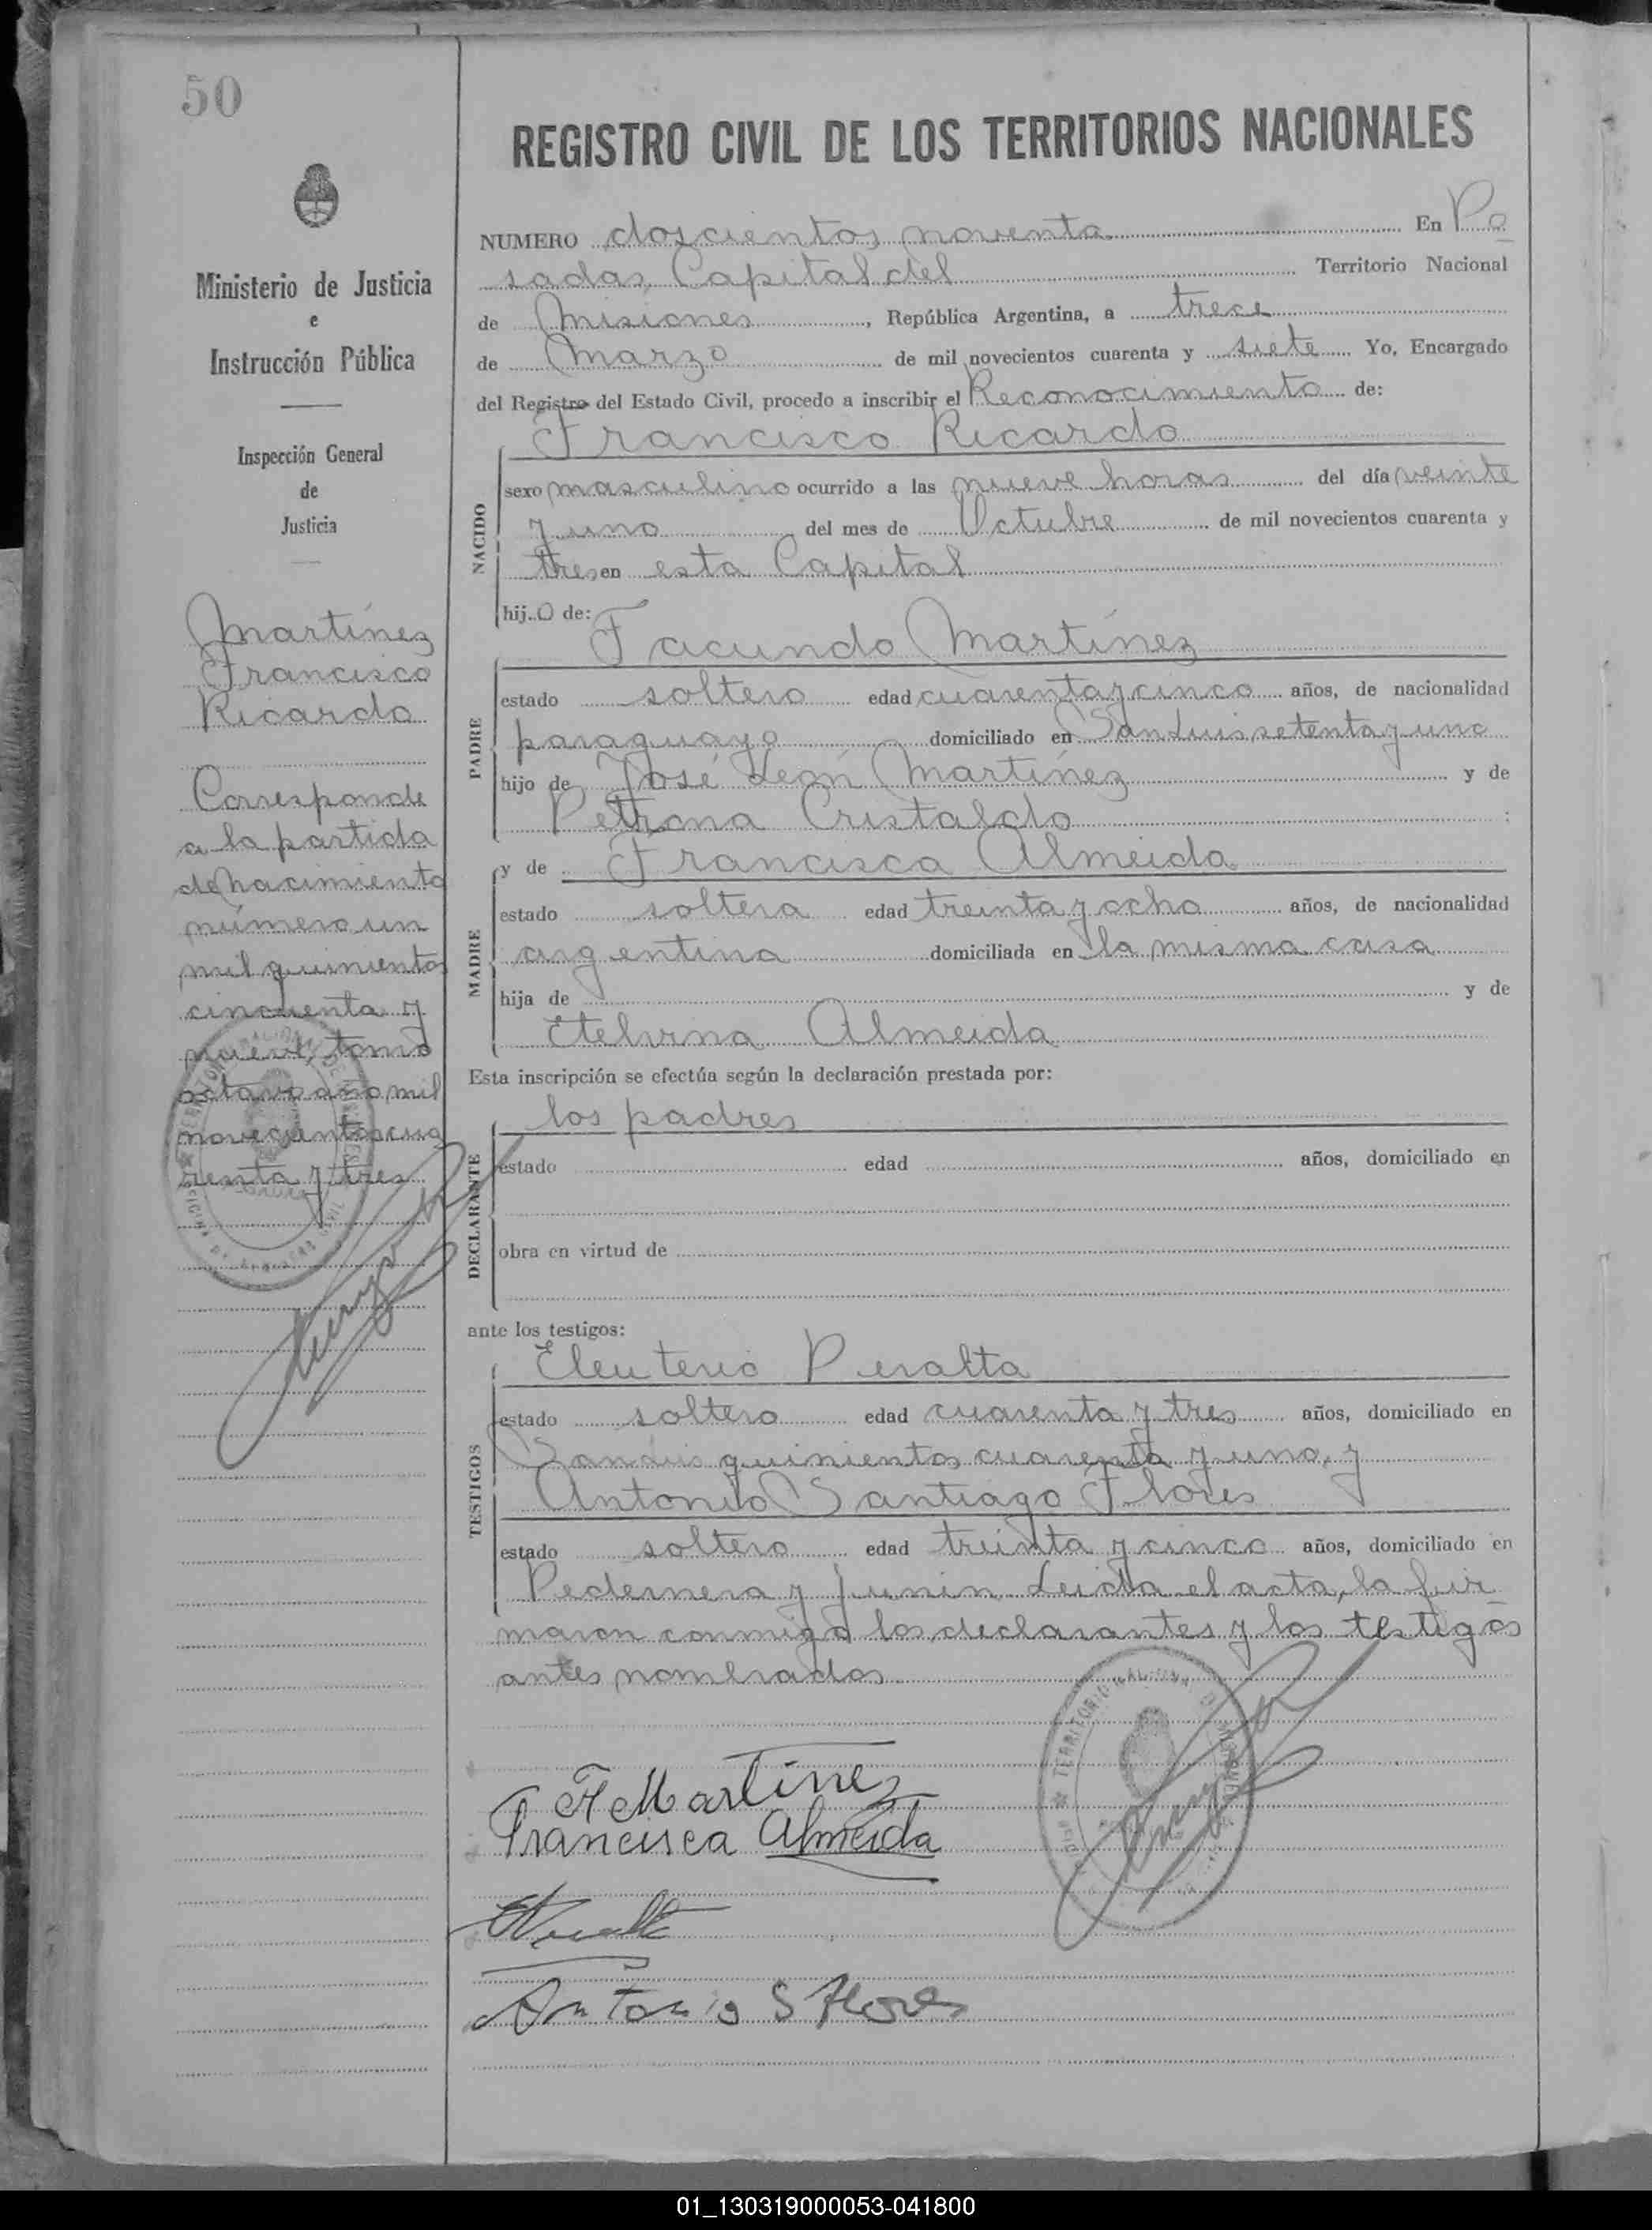 50
REGISTRO CIVIL DE LOS TERRITORIOS NACIONALES
Ministerio de Justicia
e
Instrucción Pública
Inspección General
de
Justicia
Martínez
Francisco
Ricardo
Corresponde
a la partida
de nacimiento
número un
mil quinientos
cincuenta y
nueve, tomo
octavo año mil
novecientos cua
renta y tres
NUMERO doscientos noventa En Po
sadas, Capital del Territorio Nacional
de Misiones, República Argentina, a trece
de Marzo de mil novecientos cuarenta y siete Yo, Encargado
del Registro del Estado Civil, procedo a inscribir el Reconocimiento de:
Francisco Ricardo
NACIDO
sexo masculino ocurrido a las nueve horas del día veinte
y uno del mes de Octubre de mil novecientos cuarenta y
tres en esta Capital
hij.o de:
Facundo Martínez
PADRE
estado soltero edad cuarenta y cinco años, de nacionalidad
paraguayo domiciliado en San Luis setenta y uno
hijo de José León Martínez y de
Petrona Cristaldo ;
y de Francisca Almeida
MADRE
estado soltera edad treinta y ocho años, de nacionalidad
argentina domiciliada en la misma casa
hija de y de
Etelvina Almeida
Esta inscripción se efectúa según la declaración prestada por:
los padres
DECLARANTE
estado edad años, domiciliado en
obra en virtud de
ante los testigos:
Eleuterio Peralta
TESTIGOS
estado soltero edad cuarenta y tres años, domiciliado en
San Luis quinientos cuarenta y uno, y
Antonio Santiago Flores
estado soltero edad treinta y cinco años, domiciliado en
Pedernera y Junín. Leida el acta, la fir
maron conmigo los declarantes y los testigos
antes nombrados
F Martínez
Francisca Almeida
Antonio S Flores
01_130319000053-041800